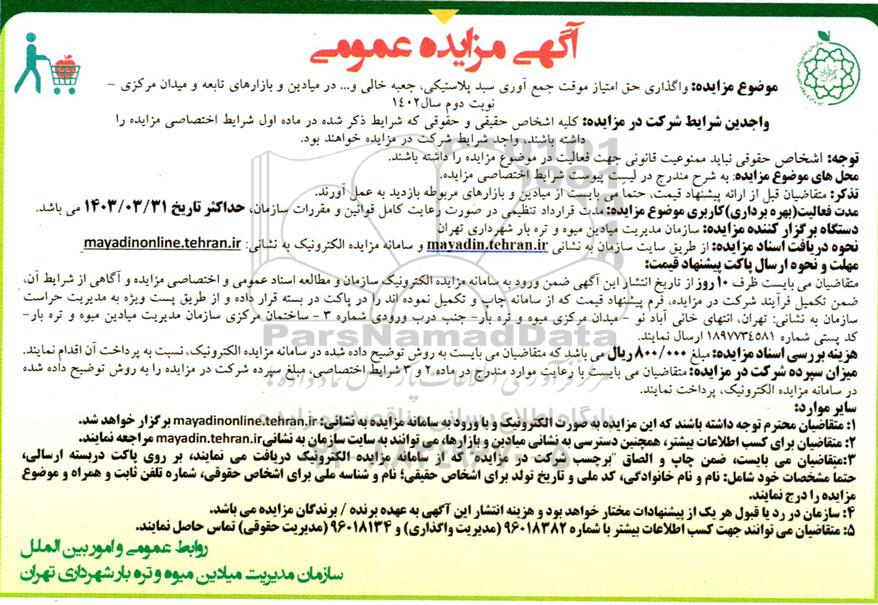 آگهی مزایده عمومی
موضوع مزایده: واگذاری حق امتیاز موقت جمع آوری سبد پلاستیکی، جعبه خالی و... در میادین و بازارهای تابعه و میدان مرکزی –
نوبت دوم سال۱۴۰۲
واجدین شرایط شرکت در مزایده: کلیه اشخاص حقیقی و حقوقی که شرایط ذکر شده در ماده اول شرایط اختصاصی مزایده را
داشته باشند، واجد شرایط شرکت در مزایده خواهند بود.
توجه: اشخاص حقوقی نباید ممنوعیت قانونی جهت فعالیت در موضوع مزایده را داشته باشند.
محل های موضوع مزایده: به شرح مندرج در لیست پیوست شرایط اختصاصی مزایده.
تذکر: متقاضیان قبل از ارائه پیشنهاد قیمت، حتما می بایست از میادین و بازارهای مربوطه بازدید به عمل آورند.
مدت فعالیت(بهره برداری)کاربری موضوع مزایده: مدت قرارداد تنظیمی در صورت رعایت کامل قوانین و مقررات سازمان، حداکثر تاریخ ۱۴۰۳/۰۳/۳۱ می باشد.
دستگاه برگزار کننده مزایده: سازمان مدیریت میادین میوه و تره بار شهرداری تهران
نحوه دریافت اسناد مزایده: از طریق سایت سازمان به نشانی mayadin.tehran.ir و سامانه مزایده الکترونیک به نشانی: mayadinonline.tehran.ir
مهلت و نحوه ارسال پاکت پیشنهاد قیمت:
متقاضیان می بایست ظرف ۱۰ روز از تاریخ انتشار این آگهی ضمن ورود به سامانه مزایده الکترونیک سازمان و مطالعه اسناد عمومی و اختصاصی مزایده و آگاهی از شرایط آن،
ضمن تکمیل فرآیند شرکت در مزایده، فرم پیشنهاد قیمت که از سامانه چاپ و تکمیل نموده اند را در پاکت در بسته قرار داده و از طریق پست ویژه به مدیریت حراست
سازمان به نشانی: تهران، انتهای خانی آباد نو – میدان مرکزی میوه و تره بار– جنب درب ورودی شماره ۳ – ساختمان مرکزی سازمان مدیریت میادین میوه و تره بار–
کد پستی شماره ۱۸۹۷۷۳۴۵۸۱ ارسال نمایند.
هزینه بررسی اسناد مزایده: مبلغ ۸۰۰/۰۰۰ ریال می باشد که متقاضیان می بایست به روش توضیح داده شده در سامانه مزایده الکترونیک، نسبت به پرداخت آن اقدام نمایند.
میزان سپرده شرکت در مزایده: متقاضیان می بایست با رعایت موارد مندرج در ماده ۲ و ۳ شرایط اختصاصی، مبلغ سپرده شرکت در مزایده را به روش توضیح داده شده
در سامانه مزایده الکترونیک، پرداخت نمایند.
سایر موارد:
۱: متقاضیان محترم توجه داشته باشند که این مزایده به صورت الکترونیک و با ورود به سامانه مزایده به نشانی: mayadinonline.tehran.ir برگزار خواهد شد.
۲: متقاضیان برای کسب اطلاعات بیشتر، همچنین دسترسی به نشانی میادین و بازارها، می توانند به سایت سازمان به نشانی mayadin.tehran.ir مراجعه نمایند.
۳: متقاضیان می بایست، ضمن چاپ و الصاق "برچسب شرکت در مزایده" که از سامانه مزایده الکترونیک دریافت می نمایند، بر روی پاکت دربسته ارسالی،
حتماً مشخصات خود شامل: نام و نام خانوادگی، کد ملی و تاریخ تولد برای اشخاص حقیقی؛ نام و شناسه ملی برای اشخاص حقوقی، شماره تلفن ثابت و همراه و موضوع
مزایده را درج نمایند.
۴: سازمان در رد یا قبول هر یک از پیشنهادات مختار خواهد بود و هزینه انتشار این آگهی به عهده برنده / برندگان مزایده می باشد.
۵: متقاضیان می توانند جهت کسب اطلاعات بیشتر با شماره ۹۶۰۱۸۳۸۲ (مدیریت واگذاری) و ۹۶۰۱۸۱۳۴ (مدیریت حقوقی) تماس حاصل نمایند.
روابط عمومی و امور بین الملل
سازمان مدیریت میادین میوه و تره بار شهرداری تهران
ParsNamadData